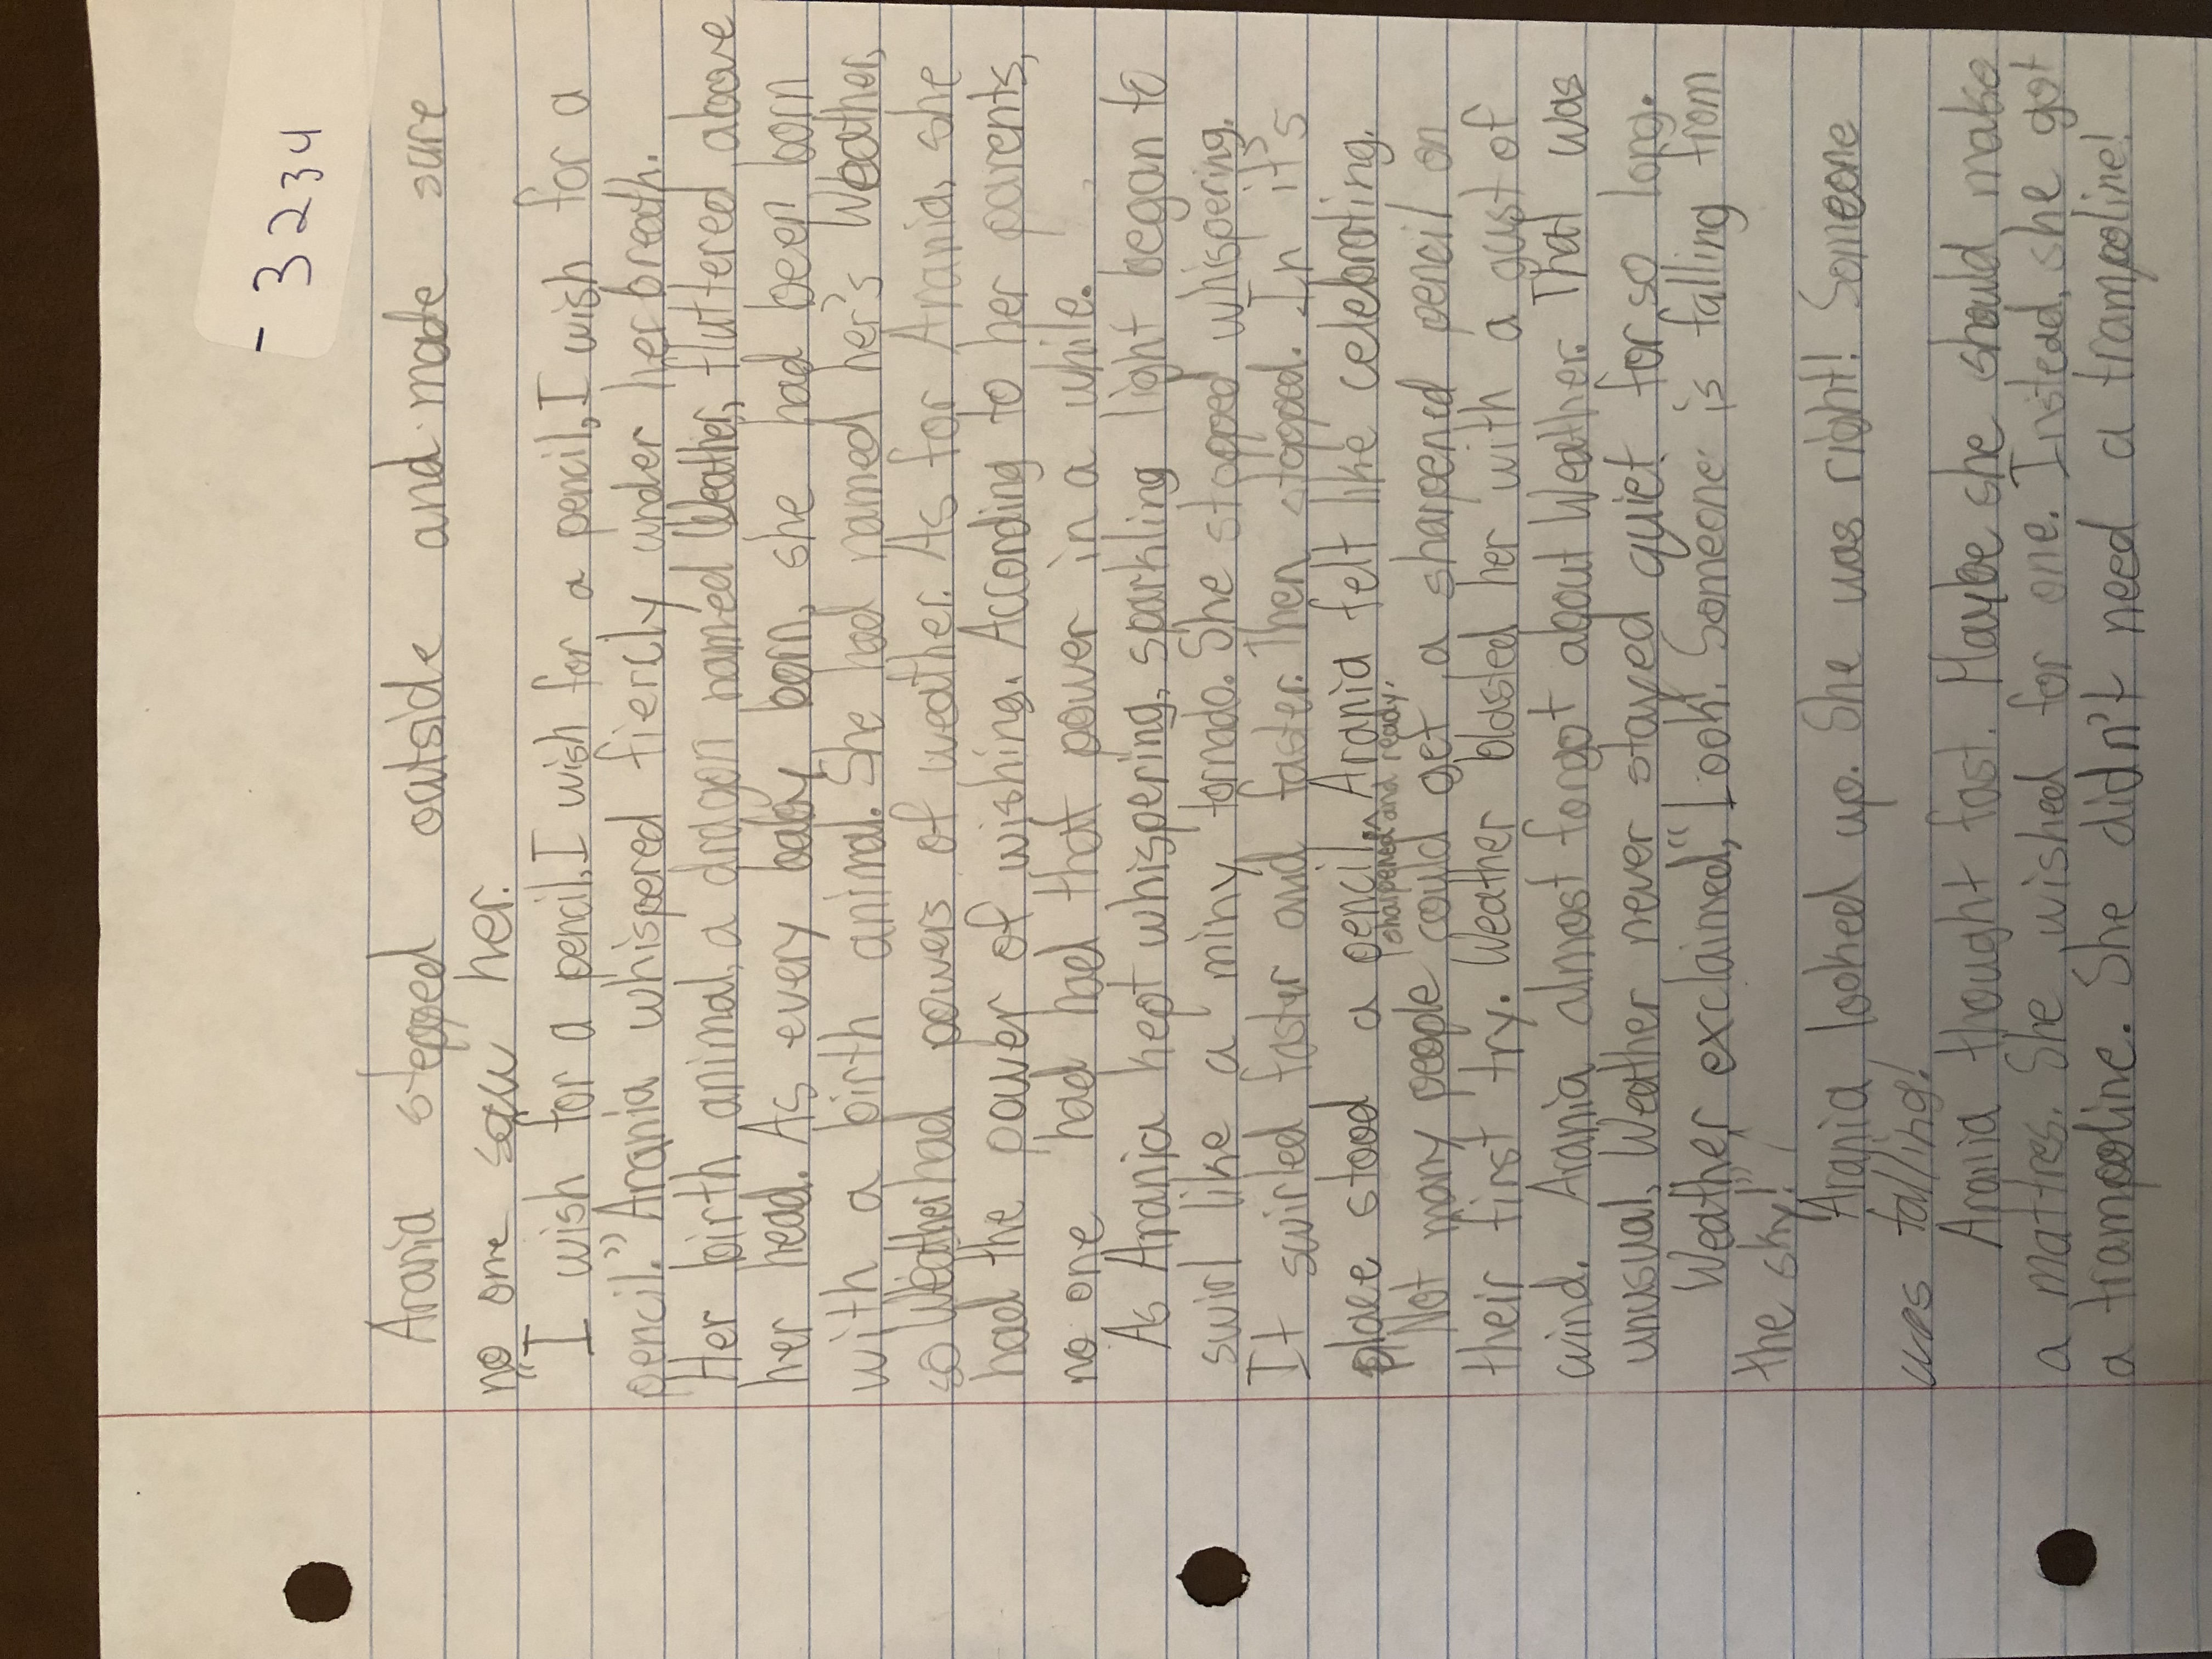 - 3234
Arania stepped outside and made sure
no one saw her.
"I wish for a pencil, I wish for a pencil, I wish for a
pencil." Arania whispered fiercly under her breath.
Her birth animal, a dragon named Weather, fluttered above
her head. As every baby born, she had been born
with a birth animal. She had named her's Weather,
so Weather had powers of weather. As for Arania, she
had the power of wishing. According to her parents,
no one had had that power in a while.
As Arania kept whispering, sparkling light began to
swirl like a miny tornado. She stopped whispering.
It swirled faster and faster. Then stopped. In it's
place stood a pencil. Arania felt like celebrating.
sharpened and ready.
Not many people could get a sharpened pencil on
their first try. Weather blasted her with a gust of
wind. Arania almost forgot about Weather. That was
unusual, Weather never stayed quiet for so long.
Weather exclaimed, "Look! Someone is falling from
the sky!"
Arania looked up. She was right! Someone
was falling!
Arania thought fast. Maybe she should make
a mattres. She wished for one. Instead, she got
a trampoline. She didn't need a trampoline!